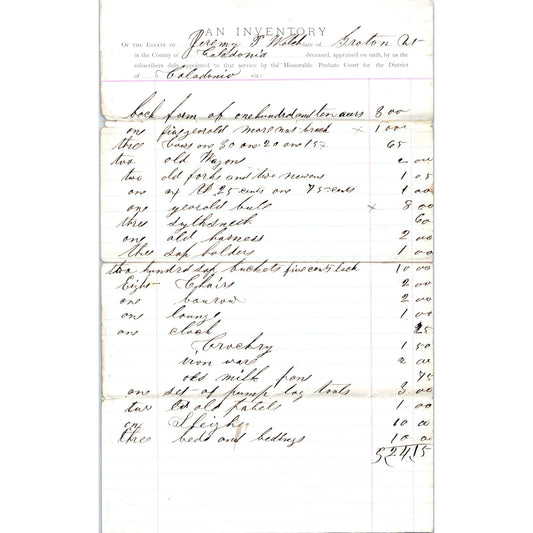 AN INVENTORY
OF THE ESTATE OF Jeremy T Welch late of Groton Vt
in the County of Caledonia deceased, appraised on oath, by us the
subscribers duly appointed to that service by the Honorable Probate Court for the District
of Caledonia viz:
back farm of one hundred and ten acurs 8 00
one five yerold mare not brock x 1 00
thre Cows one 30 one 20 one 15 x 65
two old Wagons 2 00
two old forks and two 1 05
one ax 25 cents one 75 cents 1 00
one yerold bull x 8 00
thre sythe 60
one old harness 2 00
thre sap holders 1 00
two hundrd sap buckets five cents each 10 00
Eight Chairs 2 00
one 2 00
one lounge 1 00
one clock 25
Crockry 1 50
iron ware 2 00
old milk pans 75
one set of pump log tools 3 00
two old tabels 1 00
one Sleighs 10 00
thre beds and beddings 10 00
524 15